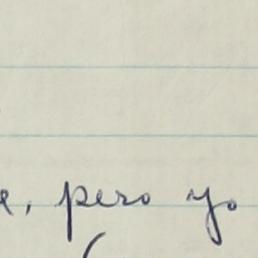 , pero yo